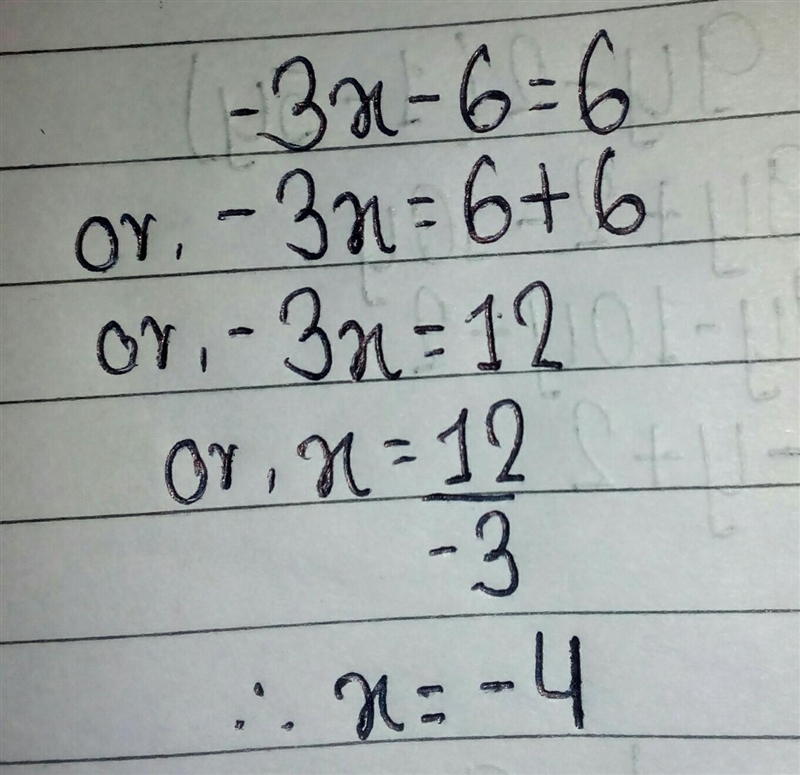 -3x - 6 = 6
or, -3x = 6 + 6
or, -3x = 12
or, x = 12
-3
∴ x = -4